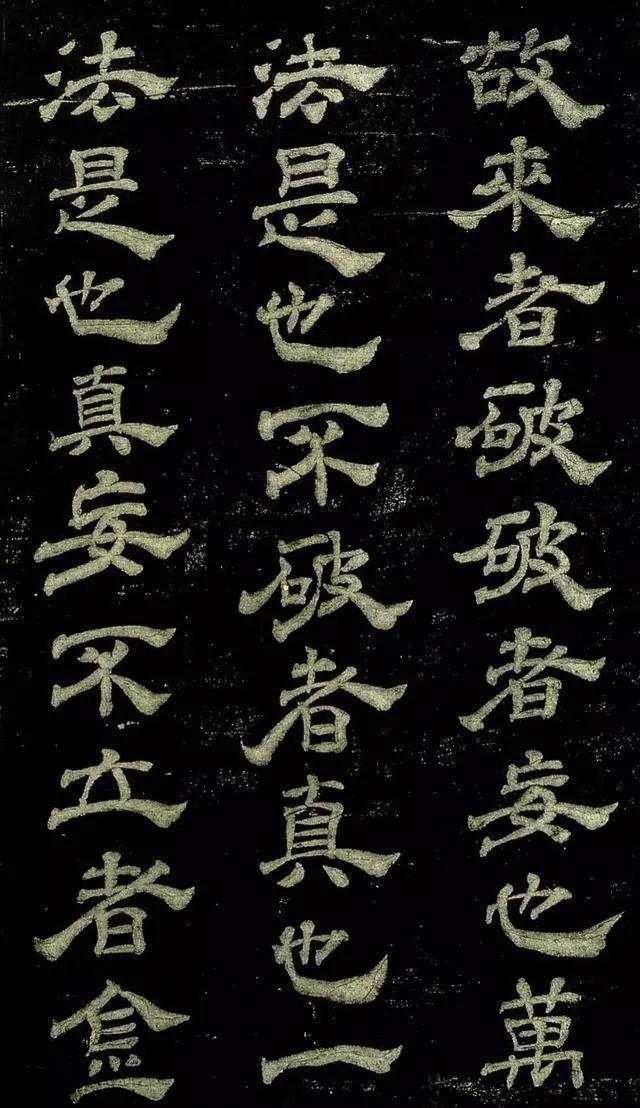 故來者破破者妄也萬
法是也不破者真也一
法是也真妄不立者